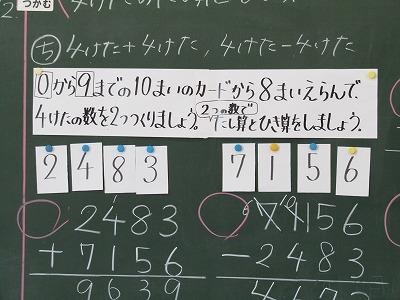 つかむ
ち 4けた+4けた, 4けた-4けた
0から9までの10まいのカードから8まいえらんで、
4けたの数を2つつくりましょう。2つの数でたし算とひき算をしましょう。
2 4 8 3 7 1 5 6
2483
+7156
9639
7156
-2483